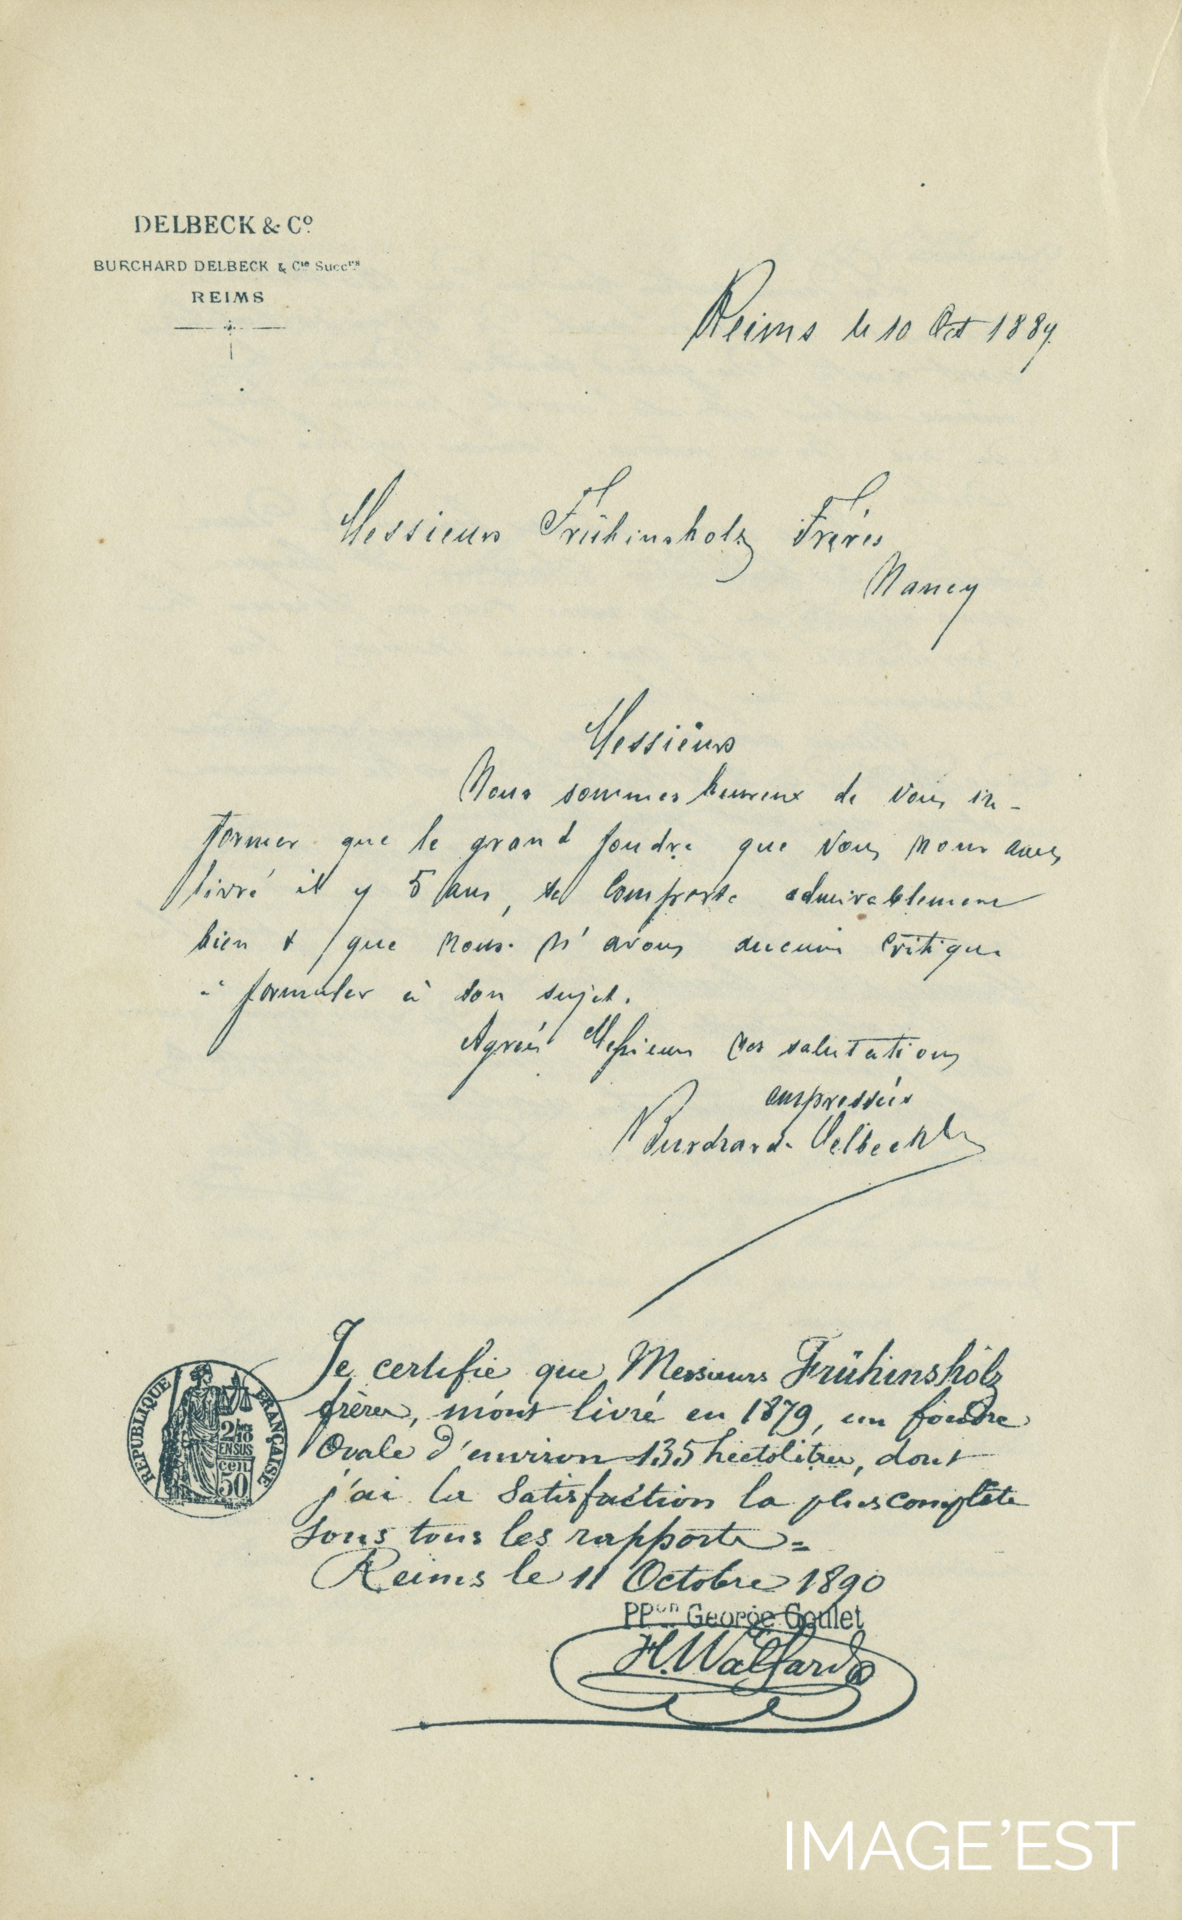 DELBECK & Cº
BURCHARD DELBECK & Cie Succrs
REIMS
Reims le 10 Oct 1889
Messieurs Frühinsholz Frères
Nancy
Messieurs
Nous sommes heureux de vous in-
former que le grand foudre que vous nous avez
livré il y 5 ans, se comporte admirablement
bien & que nous n'avons aucune critique
à formuler à son sujet.
Agréez Messieurs nos salutations
empressées
Burchard-Delbeck
Je certifie que Messieurs Frühinshölz
frères, m'ont livré en 1879, un foudre
Ovale d'environ 135 hectolitres, dont
j'ai la Satisfaction la plus complète
sous tous les rapports =
Reims le 11 Octobre 1890
PPon George Goulet
H. Walfard
REPUBLIQUE FRANÇAISE
2/10
EN SUS
50 cen
IMAGE'EST